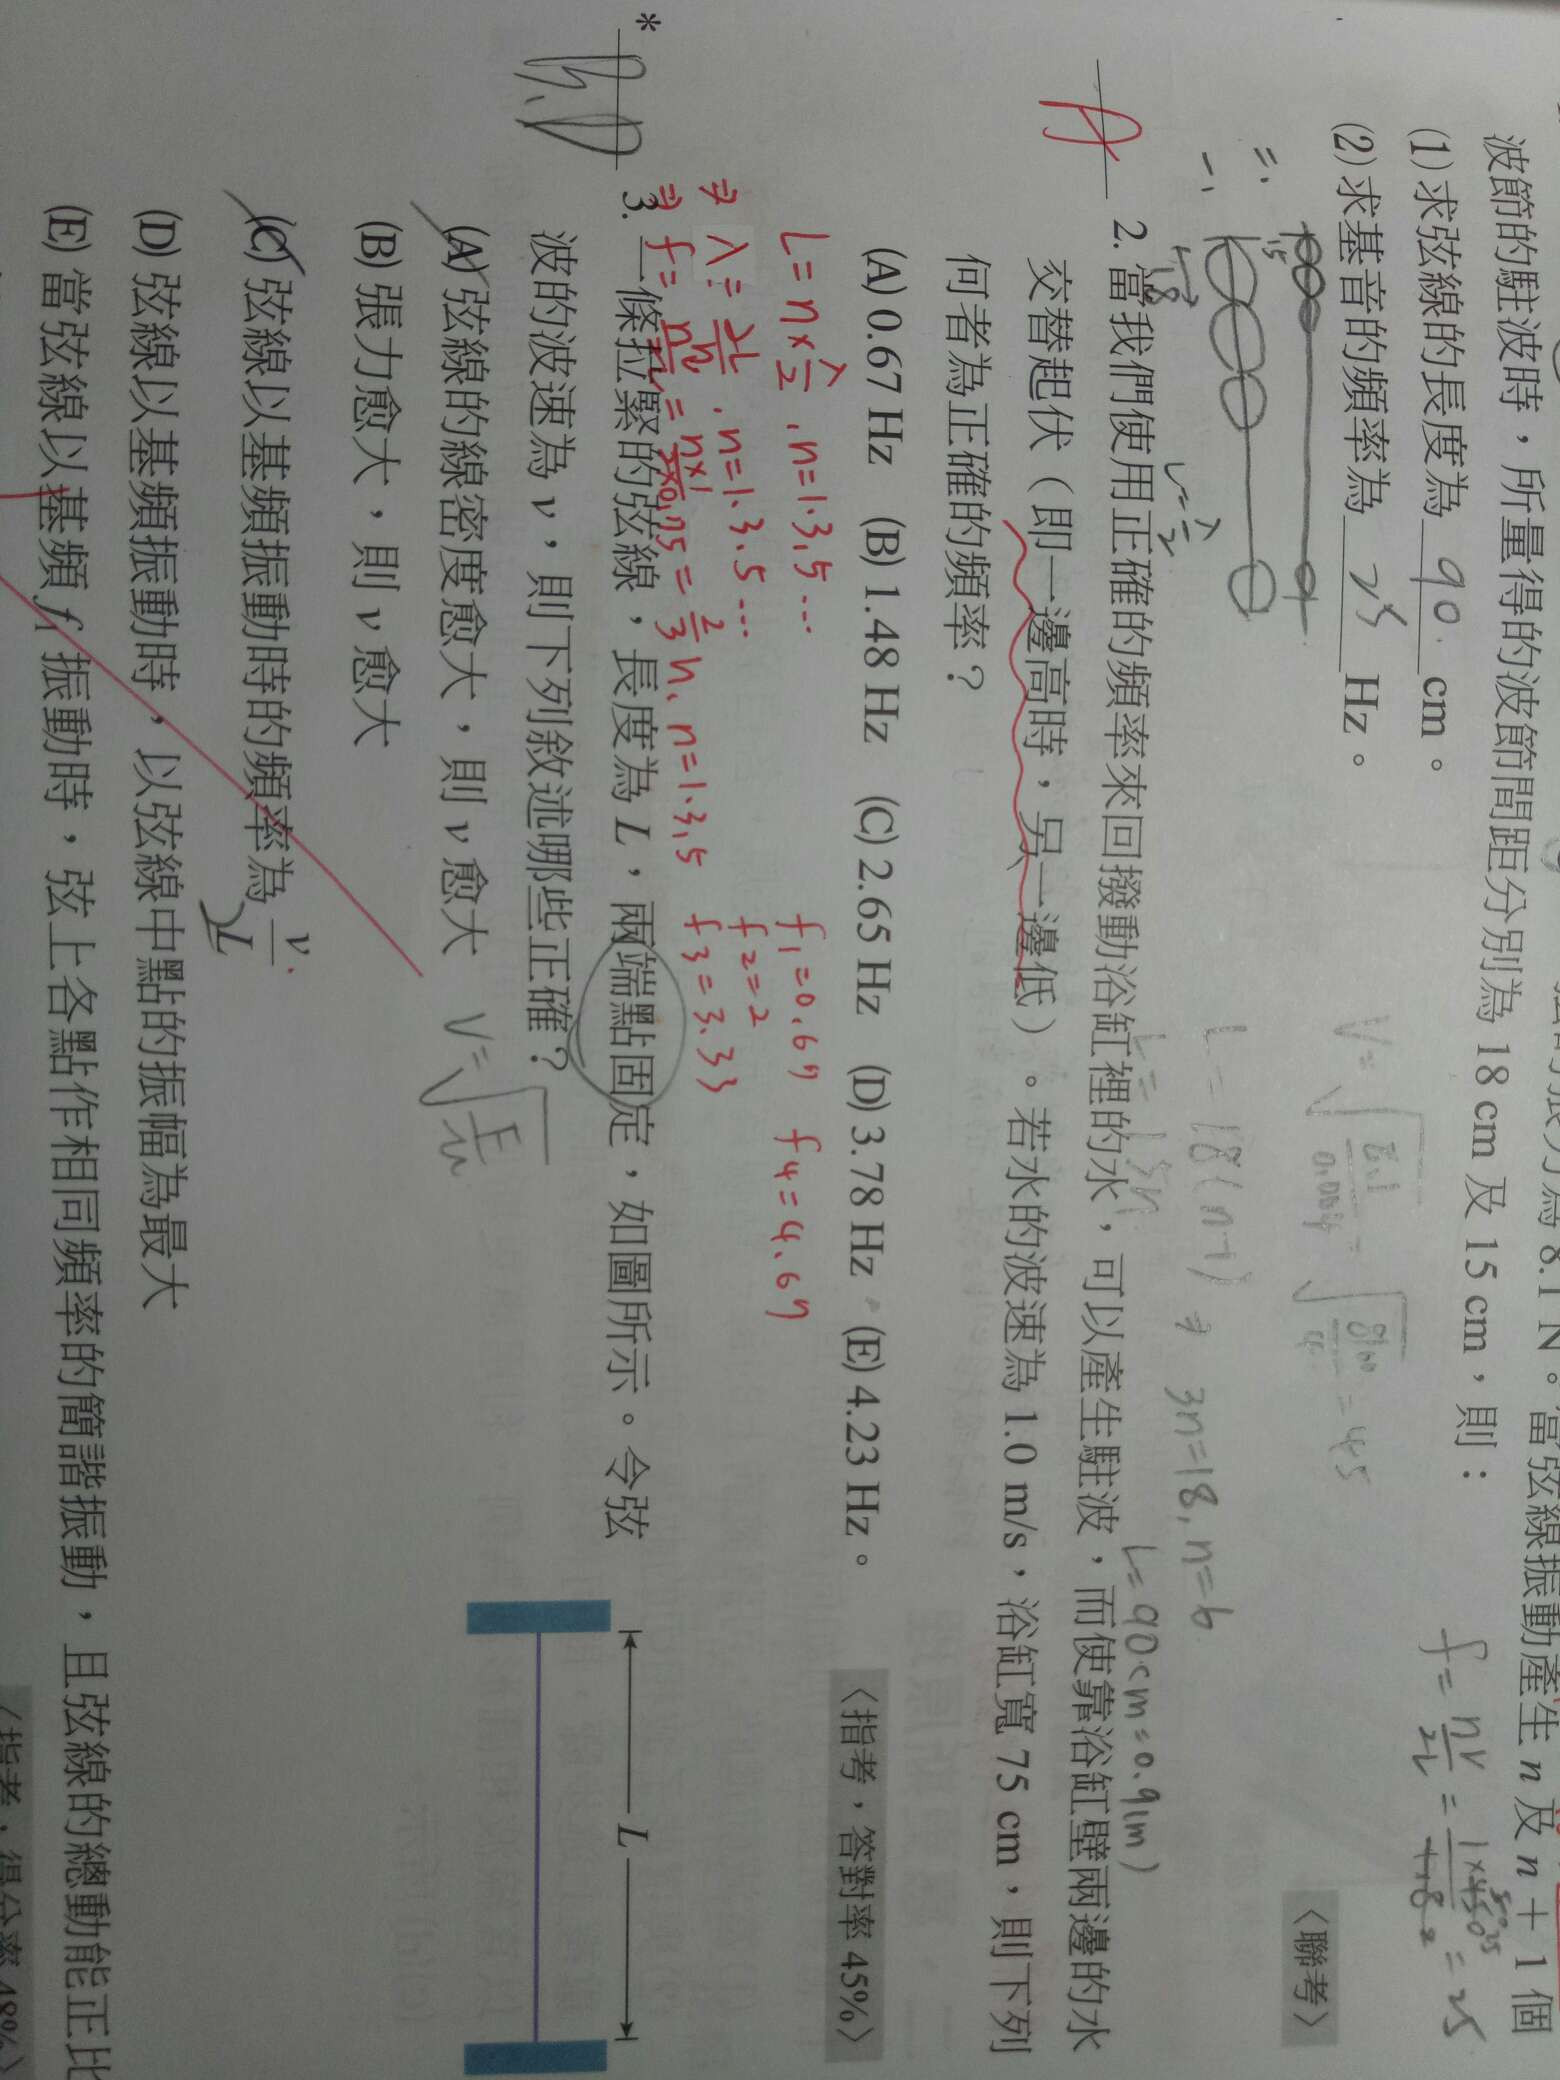 強的張力為 8.1 N。當弦線振動產生 n 及 n + 1 個
波節的駐波時，所量得的波節間距分別為 18 cm 及 15 cm，則：
(1) 求弦線的長度為 90 cm。
(2) 求基音的頻率為 25 Hz。
〈聯考〉
f = nv/2L
= 25
L = 18(n-1) ⇒ 3n=18, n=6
L=90cm=0.9(m)
L=λ/2
A
2. 當我們使用正確的頻率來回撥動浴缸裡的水，可以產生駐波，而使靠浴缸壁兩邊的水
交替起伏（即一邊高時，另一邊低）。若水的波速為 1.0 m/s，浴缸寬 75 cm，則下列
何者為正確的頻率？
(A) 0.67 Hz (B) 1.48 Hz (C) 2.65 Hz (D) 3.78 Hz (E) 4.23 Hz。
〈指考，答對率 45%〉
L = n × λ/2 , n=1.3.5 ...
⇒ λ = 2L/n , n=1.3.5 ...
⇒ f = nv/2L = n×1/2×0.75 = 2/3 n, n=1.3.5
f1=0.67 f4=4.67
f2=2
f3=3.33
*
B.D
3. 一條拉緊的弦線，長度為 L，兩端點固定，如圖所示。令弦
波的波速為 v，則下列敘述哪些正確？
(A) 弦線的線密度愈大，則 v 愈大
V=√F/u
(B) 張力愈大，則 v 愈大
(C) 弦線以基頻振動時的頻率為 v/L
(D) 弦線以基頻振動時，以弦線中點的振幅為最大
(E) 當弦線以基頻 f1 振動時，弦上各點作相同頻率的簡諧振動，且弦線的總動能正比
L
〈指考，得分率 48%〉